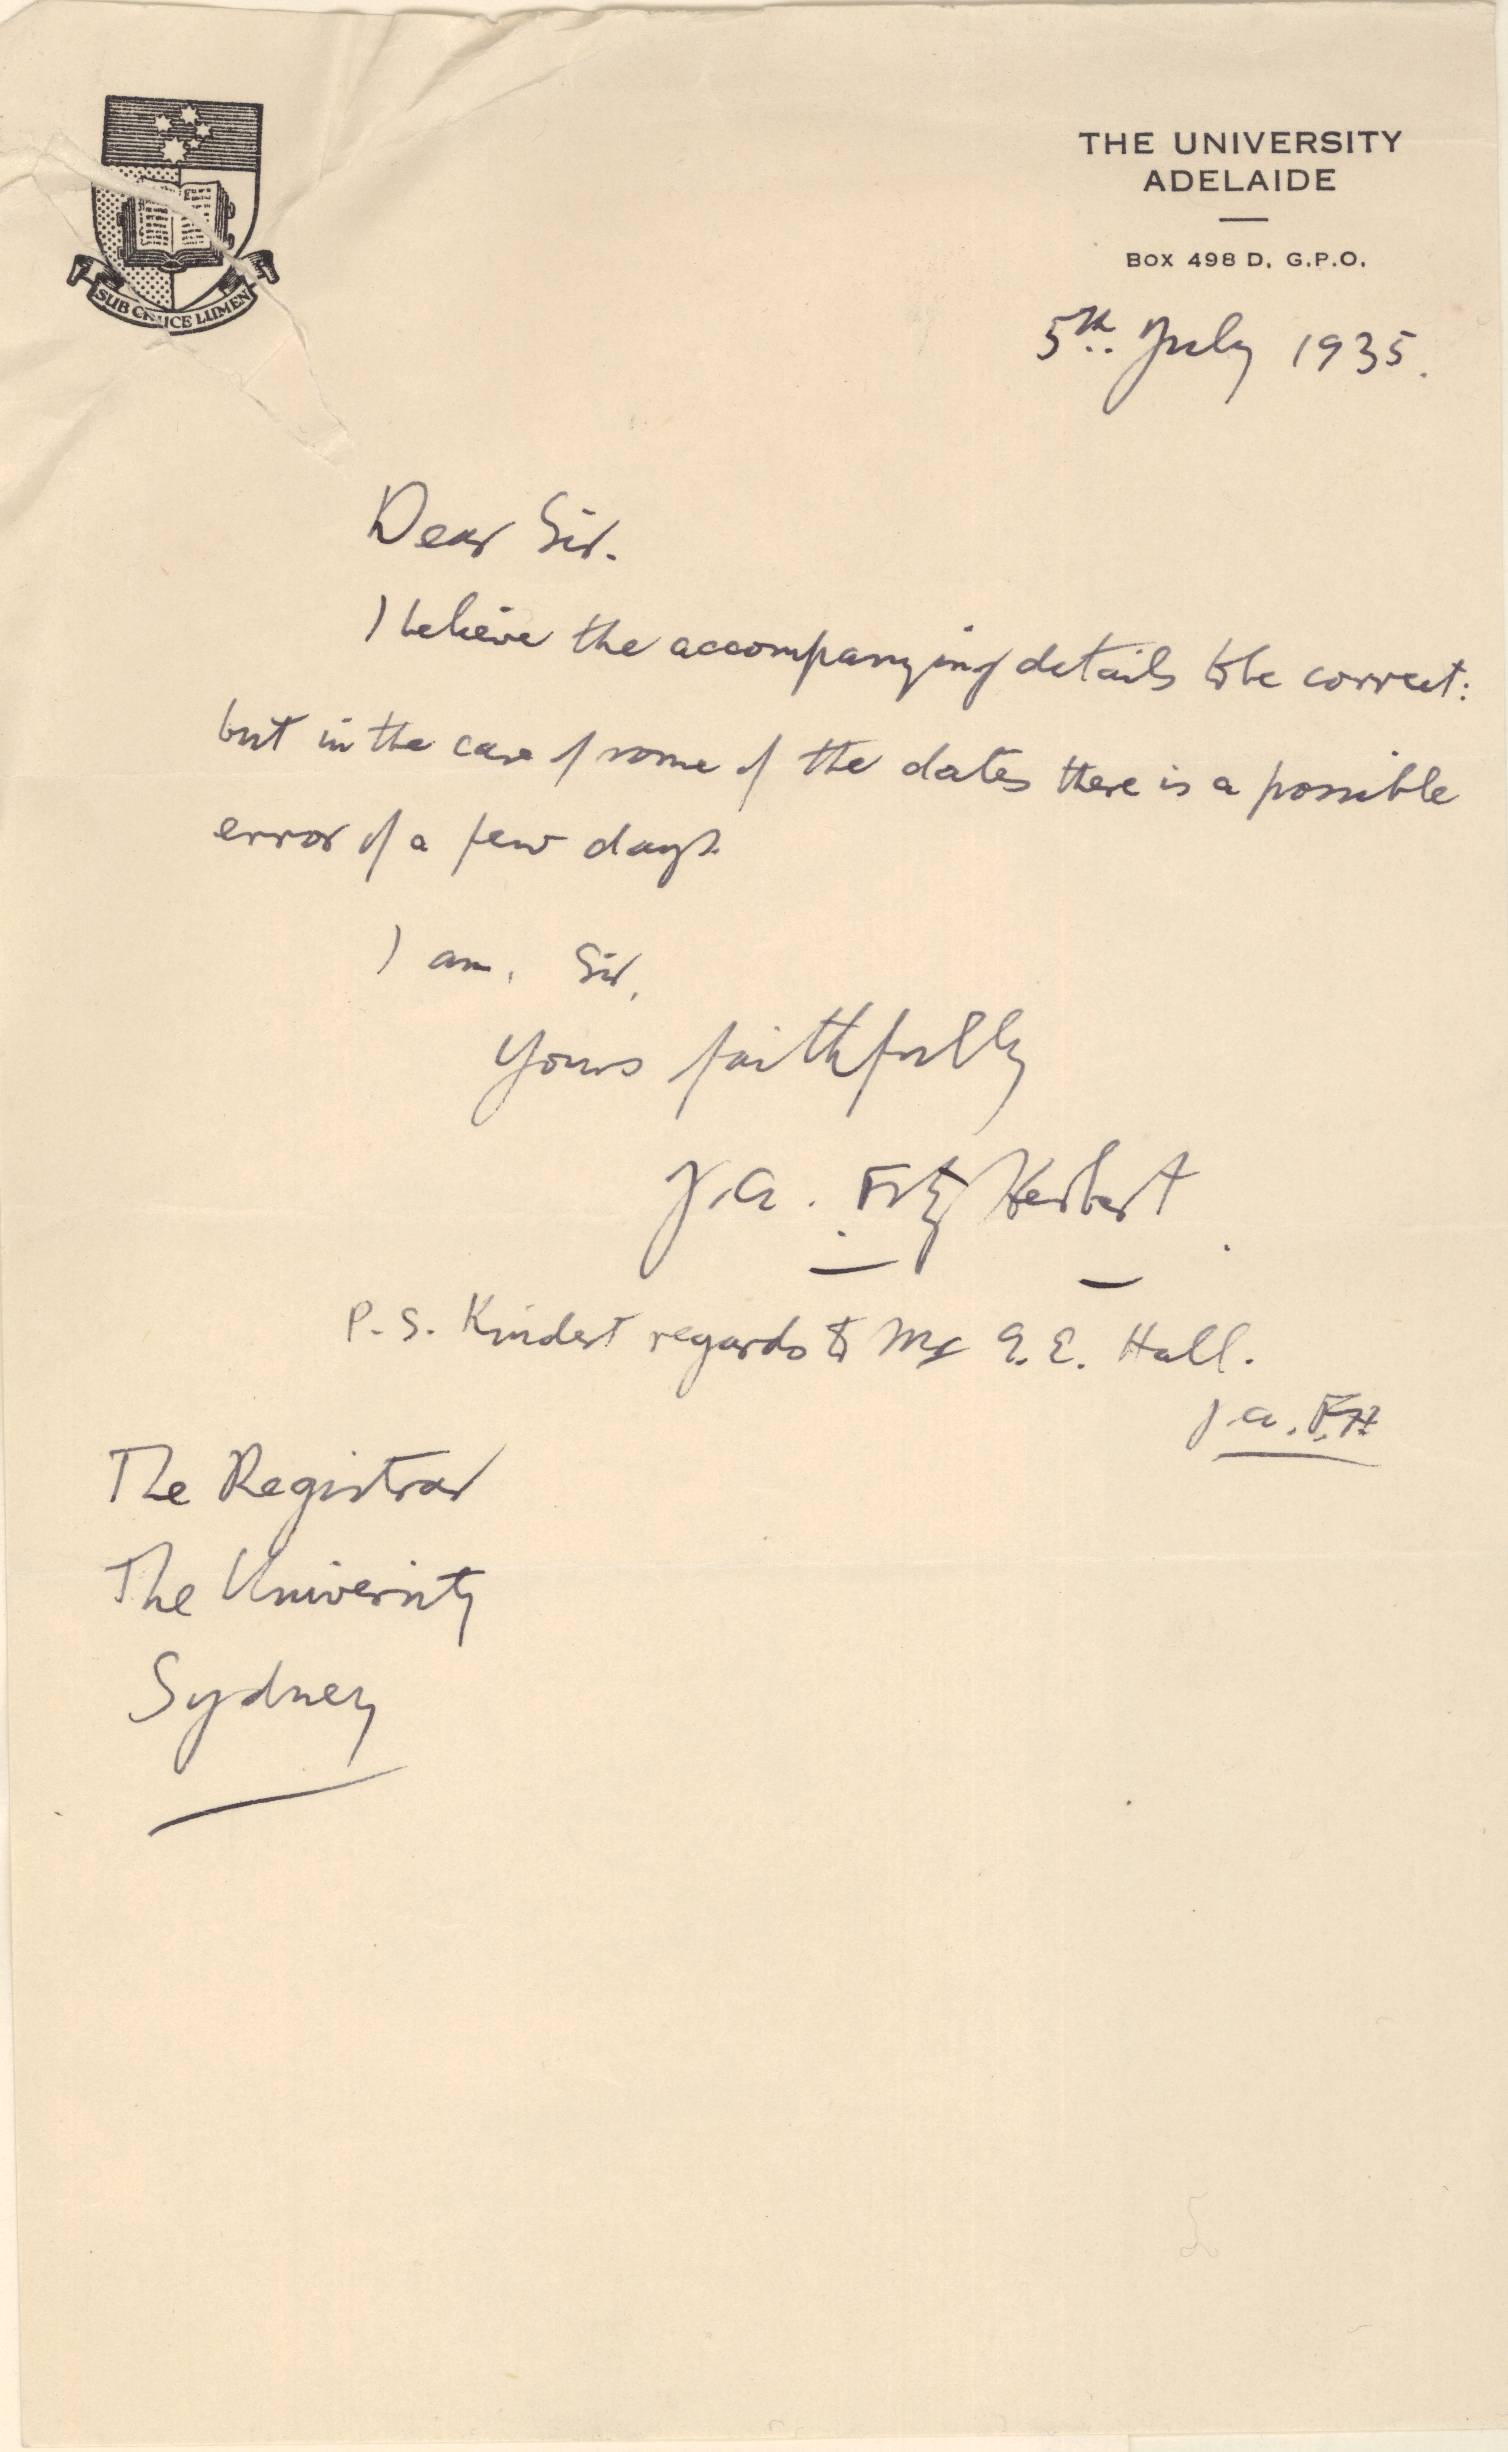 SUB CRUCE LUMEN
THE UNIVERSITY
ADELAIDE
BOX 498 D, G.P.O.
5th. July 1935.
Dear Sir.
I believe the accompanying details to be correct:
but in the case of some of the dates there is a possible
error of a few days.
I am, Sir,
Yours faithfully
J.A. FitzHerbert.
P.S. Kindest regards to Mr G. E. Hall.
J.A.F.H
The Registrar
The University
Sydney